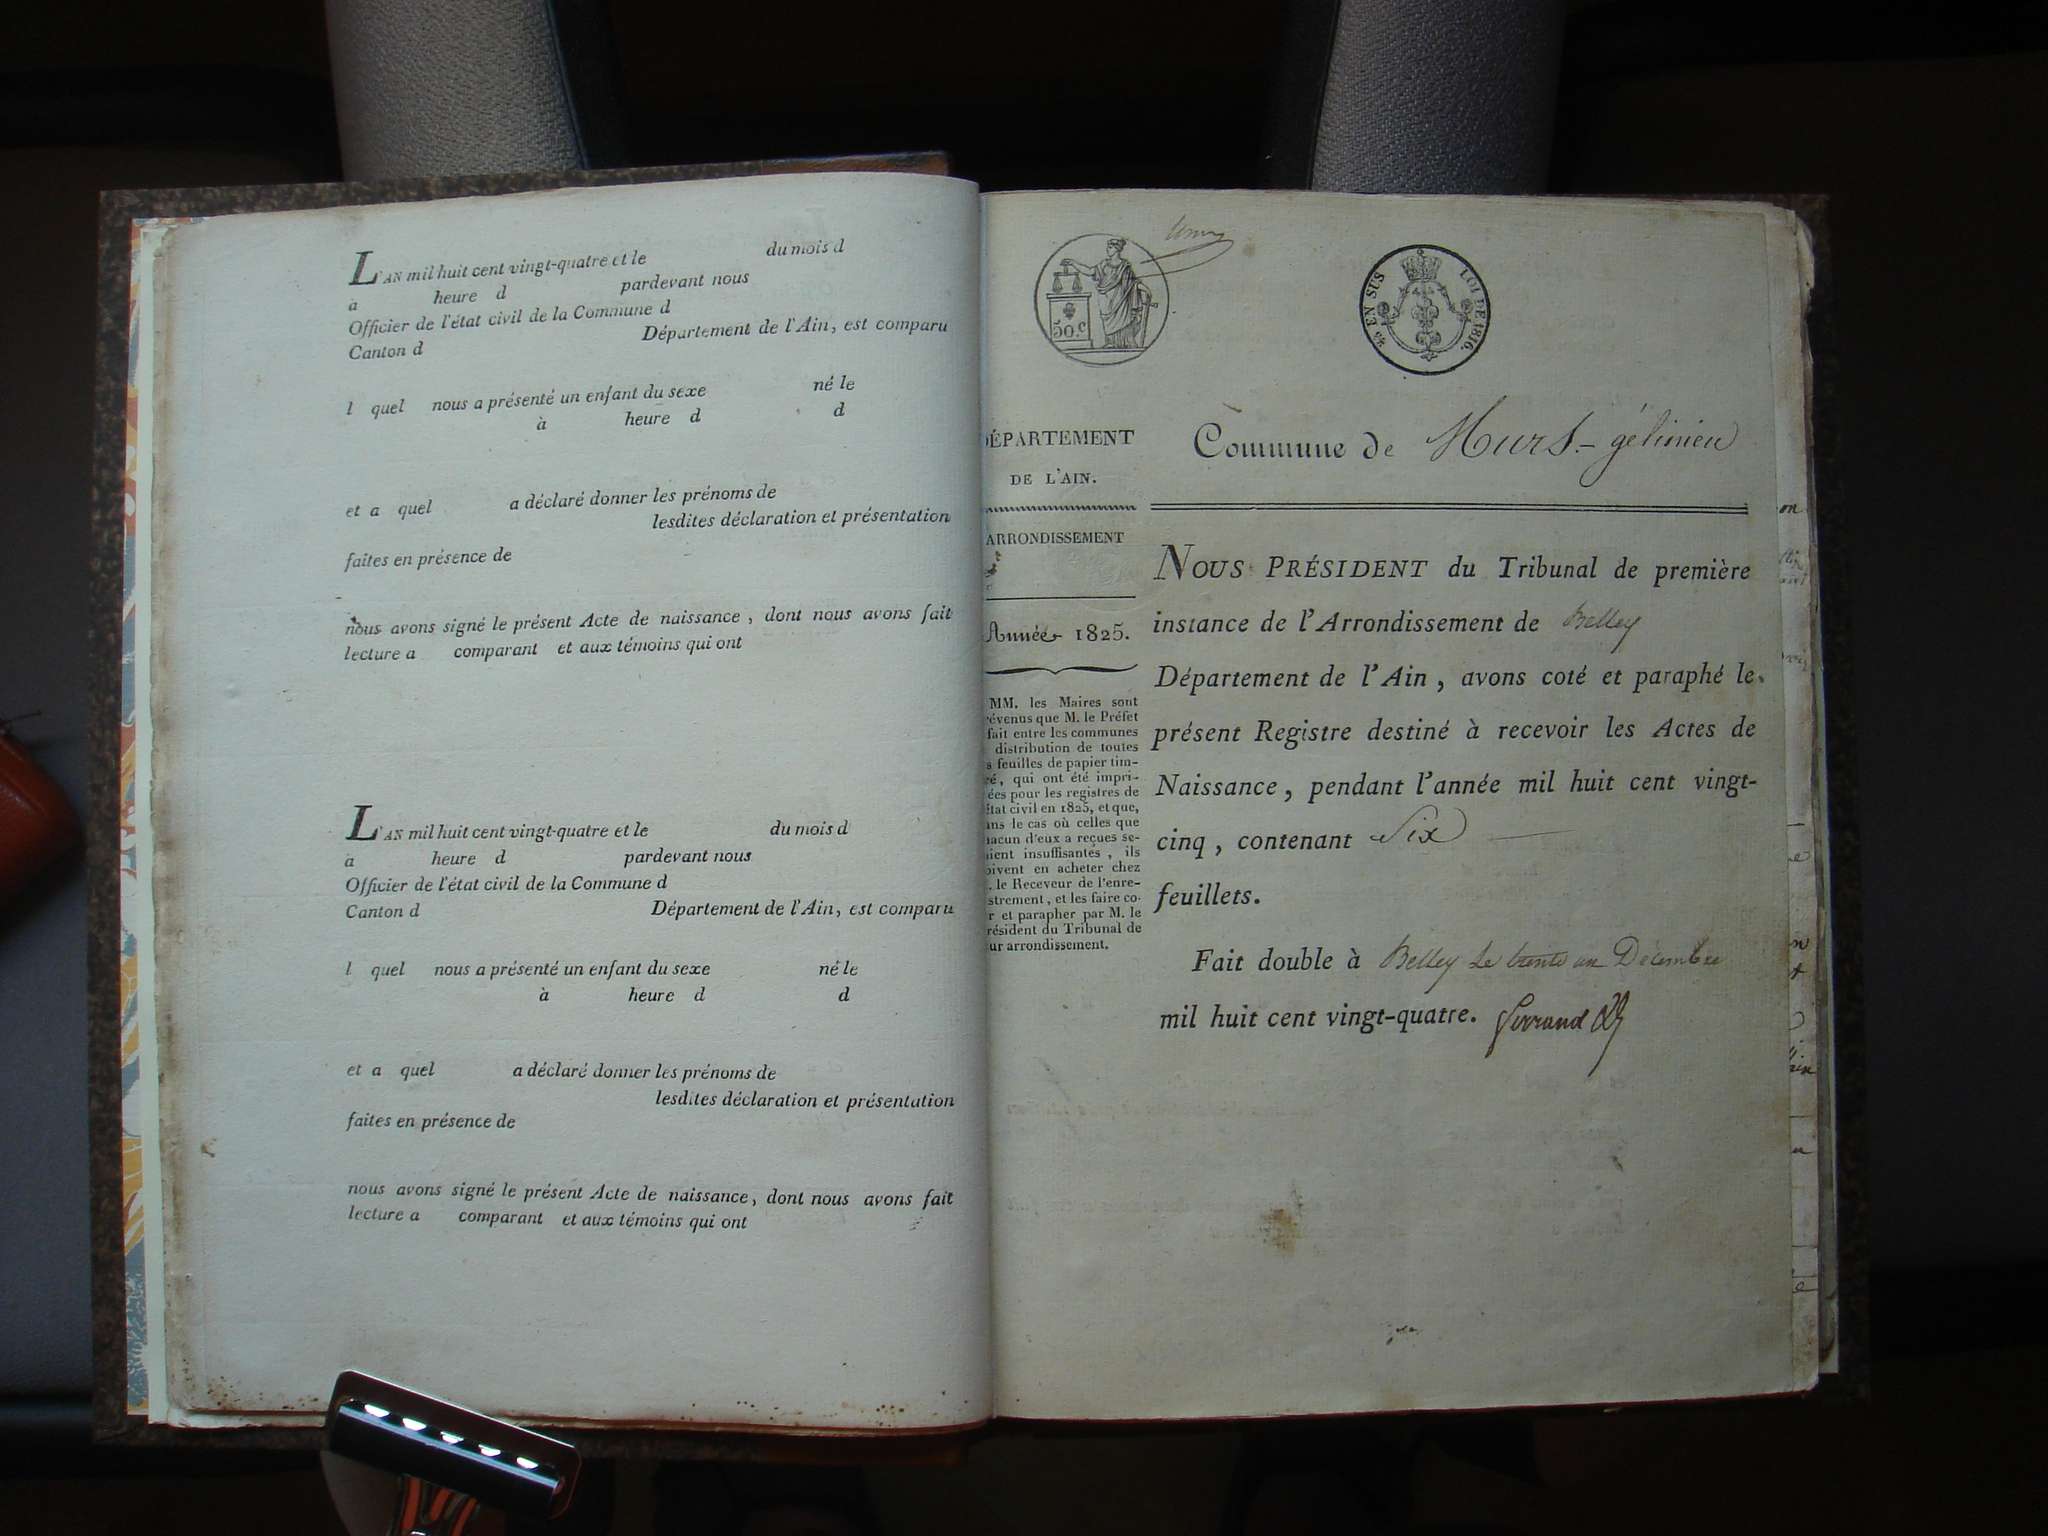 L'AN mil huit cent vingt-quatre et le du mois d
à heure d pardevant nous
Officier de l'état civil de la Commune d
Canton d Département de l'Ain, est comparu
l quel nous a présenté un enfant du sexe né le
à heure d d
et a quel a déclaré donner les prénoms de
lesdites déclaration et présentation
faites en présence de
nous avons signé le présent Acte de naissance, dont nous avons fait
lecture a comparant et aux témoins qui ont
L'AN mil huit cent vingt-quatre et le du mois d
à heure d pardevant nous
Officier de l'état civil de la Commune d
Canton d Département de l'Ain, est comparu
l quel nous a présenté un enfant du sexe né le
à heure d d
et a quel a déclaré donner les prénoms de
lesdites déclaration et présentation
faites en présence de
nous avons signé le présent Acte de naissance, dont nous avons fait
lecture a comparant et aux témoins qui ont
50.c
EN SUS LOI DE 1816.
DÉPARTEMENT
DE L'AIN.
ARRONDISSEMENT
Année 1825.
MM. les Maires sont
révenus que M. le Préfet
fait entre les communes
distribution de toutes
s feuilles de papier tim-
ré, qui ont été impri-
ées pour les registres de
état civil en 1825, et que,
ans le cas où celles que
hacun d'eux a reçues se-
aient insuffisantes, ils
oivent en acheter chez
. le Receveur de l'enre-
strement, et les faire co-
r et parapher par M. le
résident du Tribunal de
ur arrondissement.
Commune de Murs-gélinieu
NOUS PRÉSIDENT du Tribunal de première
instance de l'Arrondissement de Belley
Département de l'Ain, avons coté et paraphé le
présent Registre destiné à recevoir les Actes de
Naissance, pendant l'année mil huit cent vingt-
cinq, contenant Six
feuillets.
Fait double à Belley Le trente un Décembre
mil huit cent vingt-quatre.